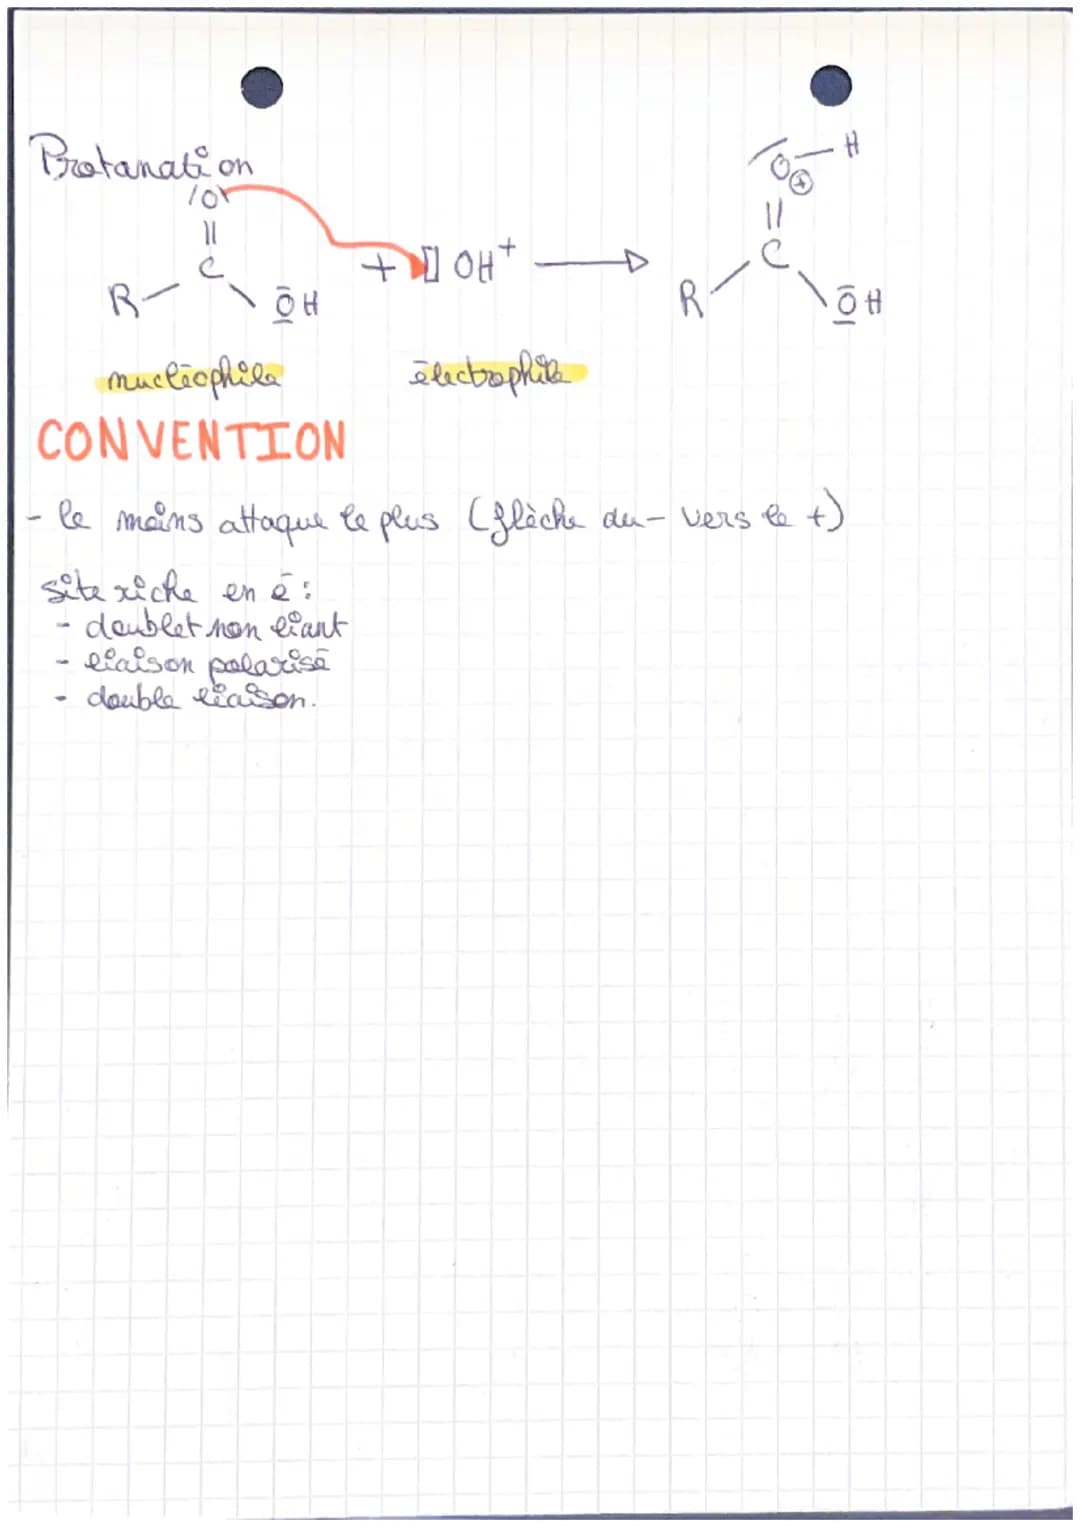 Protonation
|O\
||
C
R
ŌH
+ [] OH⁺
O⊕ — H
||
C
R
ŌH
nucléophile
électrophile
CONVENTION
- le moins attaque le plus (flèche du - vers le +)
site riche en é :
- doublet non liant
- liaison polarisé
- double liaison.